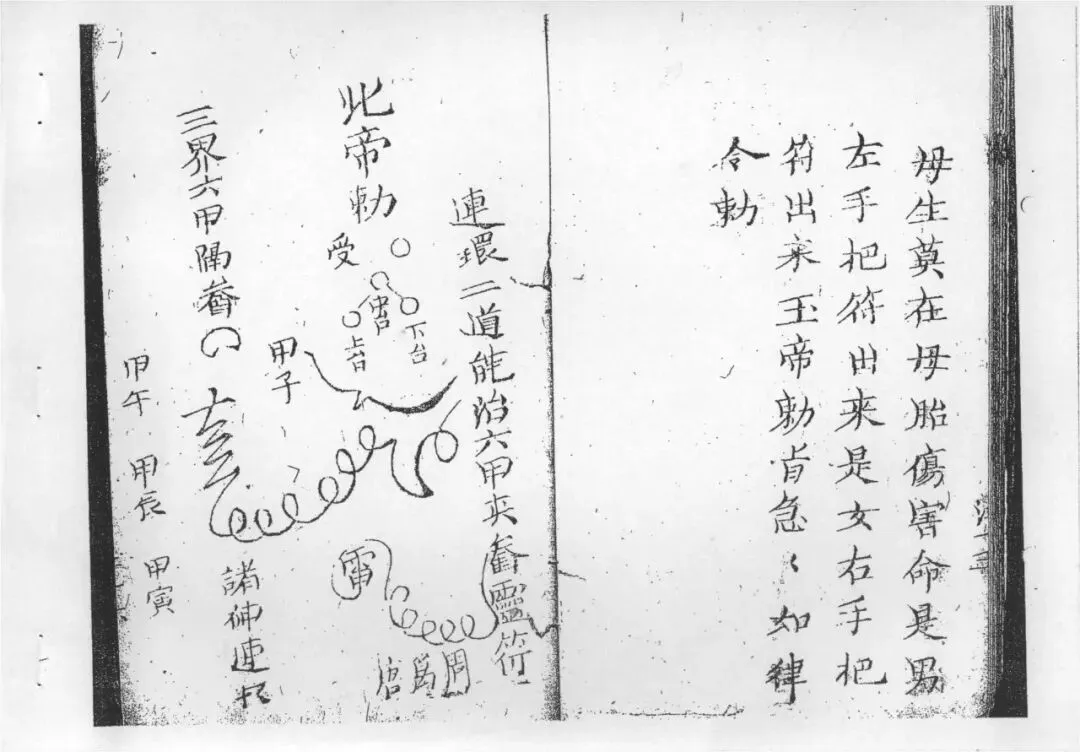 母生莫在母胎傷害命是男
左手把符出來是女右手把
符出来玉帝勅旨急〻如律
令勅
連環二道能治六甲夾靈符
北帝勅
受
下台
甲子
三界六甲隔
甲午 甲辰 甲寅
諸神連
雷
唐 周